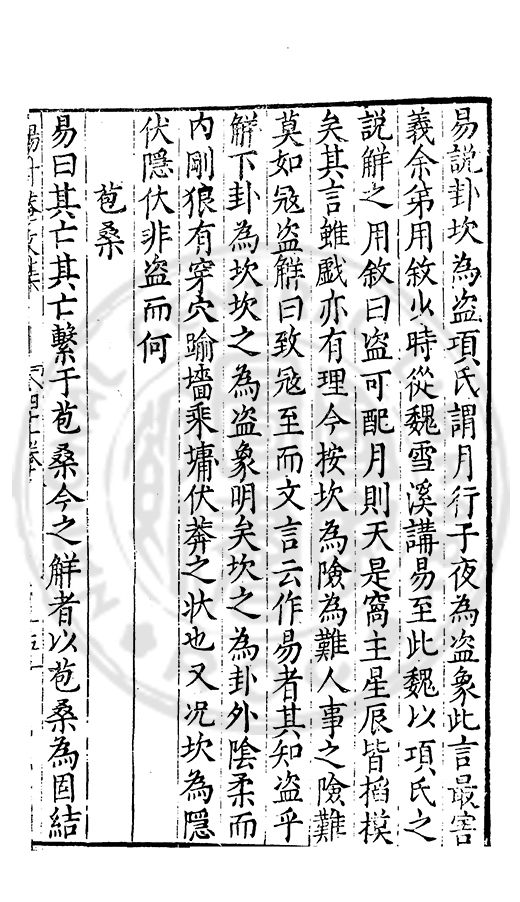 易說卦坎為盗項氏謂月行于夜為盗象此言最害
義余弟用敘少時從魏雪溪講易至此魏以項氏之
說解之用敘曰盗可配月則天是窩主星辰皆掐摸
矣其言雖戲亦有理今按坎為險為難人事之險難
莫如冦盗觧曰致冦至而文言云作易者其知盗乎
觧下卦為坎坎之為盗象明矣坎之為卦外陰柔而
内剛狠有穿穴踰墻乘墉伏莽之状也又况坎為隱
伏隱伏非盗而何
苞桑
易曰其亡其亡繫于苞桑今之觧者以苞桑為固結